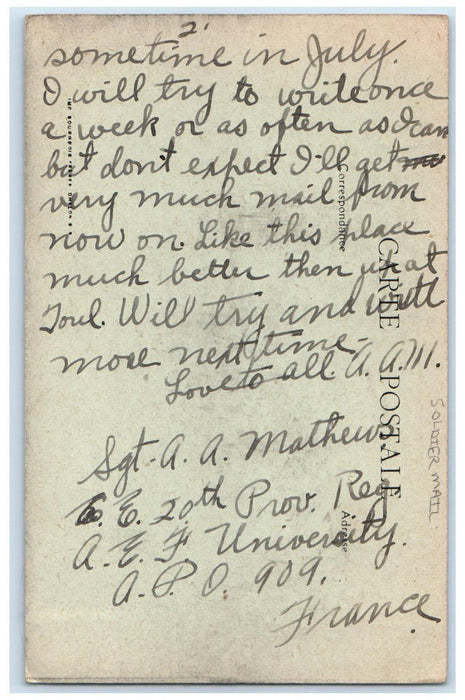 2.
sometime in July.
I will try to write once
a week or as often as I can
but dont expect I'll get
very much mail from
now on. Like this place
much better then what at
Toul. Will try and write
more next time.
Love to all. A. A. M.
Sgt. A. A. Mathews
E. 20th Prov. Reg
A. E. F. University.
A. P. O. 909.
France
CARTE POSTALE
Correspondance
Adresse
SOLDIER MAIL